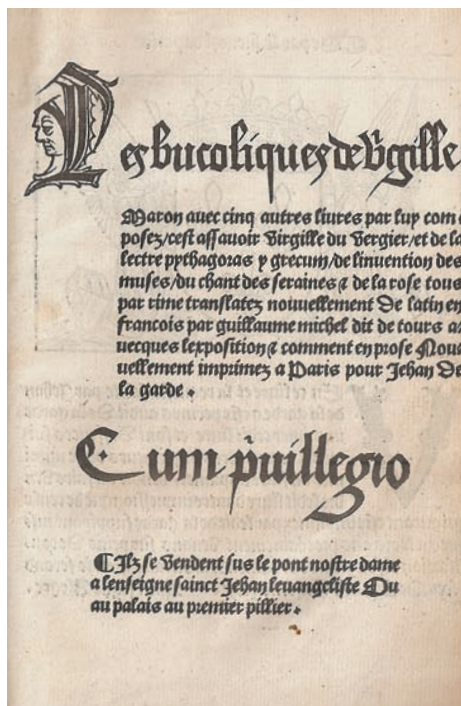 Les bucoliques de Virgille
Maron auec cinq autres liures par luy com
posez/cest assauoir Virgille du Vergier/et de la
lectre pythagoras y grecum/de linuention des
muses/du chant des seraines & de la rose tous
par rime translatez nouuellement De latin en
francois par guillaume michel dit de tours a
uecques lexposition & comment en prose Nou
uellement imprimez a Paris pour Jehan De
la garde.
Cum priuillegio
Ilz se Vendent sus le pont nostre dame
a lenseigne sainct Jehan leuangeliste Ou
au palais au premier pillier.